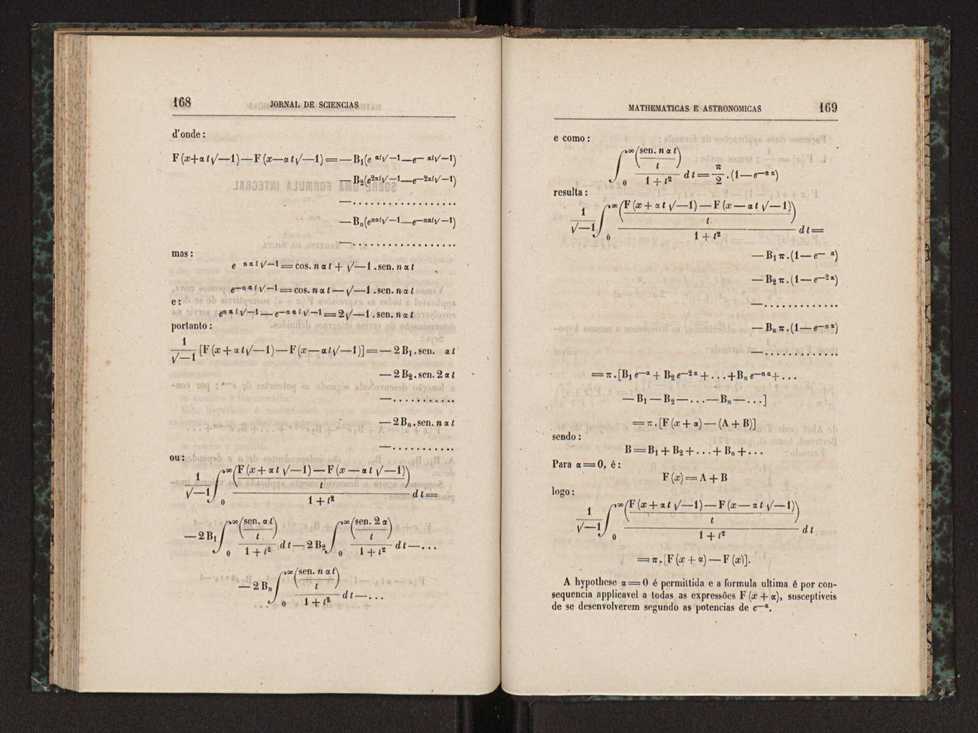 168 JORNAL DE SCIENCIAS
d'onde :
F (x+αt√—1)—F (x—αt√—1) = —B₁(e^{αt√—1}—e^{— αt√—1})
—B₂(e^{2αt√—1}—e^{—2αt√—1})
—. . . . . . . . . . . . . . . . . .
—Bₙ(e^{nαt√—1}—e^{—nαt√—1})
—. . . . . . . . . . . . . . . . . .
mas :
e^{n α t √—1} = cos. n α t + √—1 . sen. n α t
e^{—n α t √—1} = cos. n α t — √—1 . sen. n α t
e :
e^{n α t √—1} — e^{—n α t √—1} = 2 √—1 . sen. n α t
portanto :
1/√—1 [F (x+αt√—1)—F (x—αt√—1)] = — 2 B₁ . sen. αt
— 2 B₂ . sen. 2 α t
—. . . . . . . . . . .
— 2 Bₙ . sen. n α t
—. . . . . . . . . . .
ou :
1/√—1 ∫₀^∞ ((F (x + αt √—1) — F (x — αt √—1))/t)/(1 + t²) dt =
— 2 B₁ ∫₀^∞ (sen. αt/t)/(1 + t²) dt — 2 B₂ ∫₀^∞ (sen. 2 α/t)/(1 + t²) dt — . . .
— 2 Bₙ ∫₀^∞ (sen. n αt/t)/(1 + t²) dt — . . .
MATHEMATICAS E ASTRONOMICAS 169
e como :
∫₀^∞ (sen. n αt/t)/(1 + t²) dt = π/2 . (1—e^{—nα})
resulta :
1/√—1 ∫₀^∞ ((F (x + αt √—1) — F (x — αt √—1))/t)/(1 + t²) dt =
— B₁ π . (1 — e^{— α})
— B₂ π . (1 — e^{—2 α})
—. . . . . . . . . . . . .
— Bₙ π . (1—e^{—n α})
—. . . . . . . . . . . . .
= π . [B₁ e^{—α} + B₂ e^{—2 α} + . . . + Bₙ e^{—n α} + . . .
— B₁ — B₂ — . . . — Bₙ — . . .]
= π . [F (x + α) — (A + B)]
sendo :
B = B₁ + B₂ + . . . + Bₙ + . . .
Para α = 0, é :
F (x) = A + B
logo :
1/√—1 ∫₀^∞ ((F (x + αt √—1) — F (x — αt √—1))/t)/(1 + t²) dt
= π . [F (x + α) — F (x)].
A hypothese α = 0 é permittida e a formula ultima é por con-
sequencia applicavel a todas as expressões F (x + α), susceptiveis
de se desenvolverem segundo as potencias de e^{—α}.